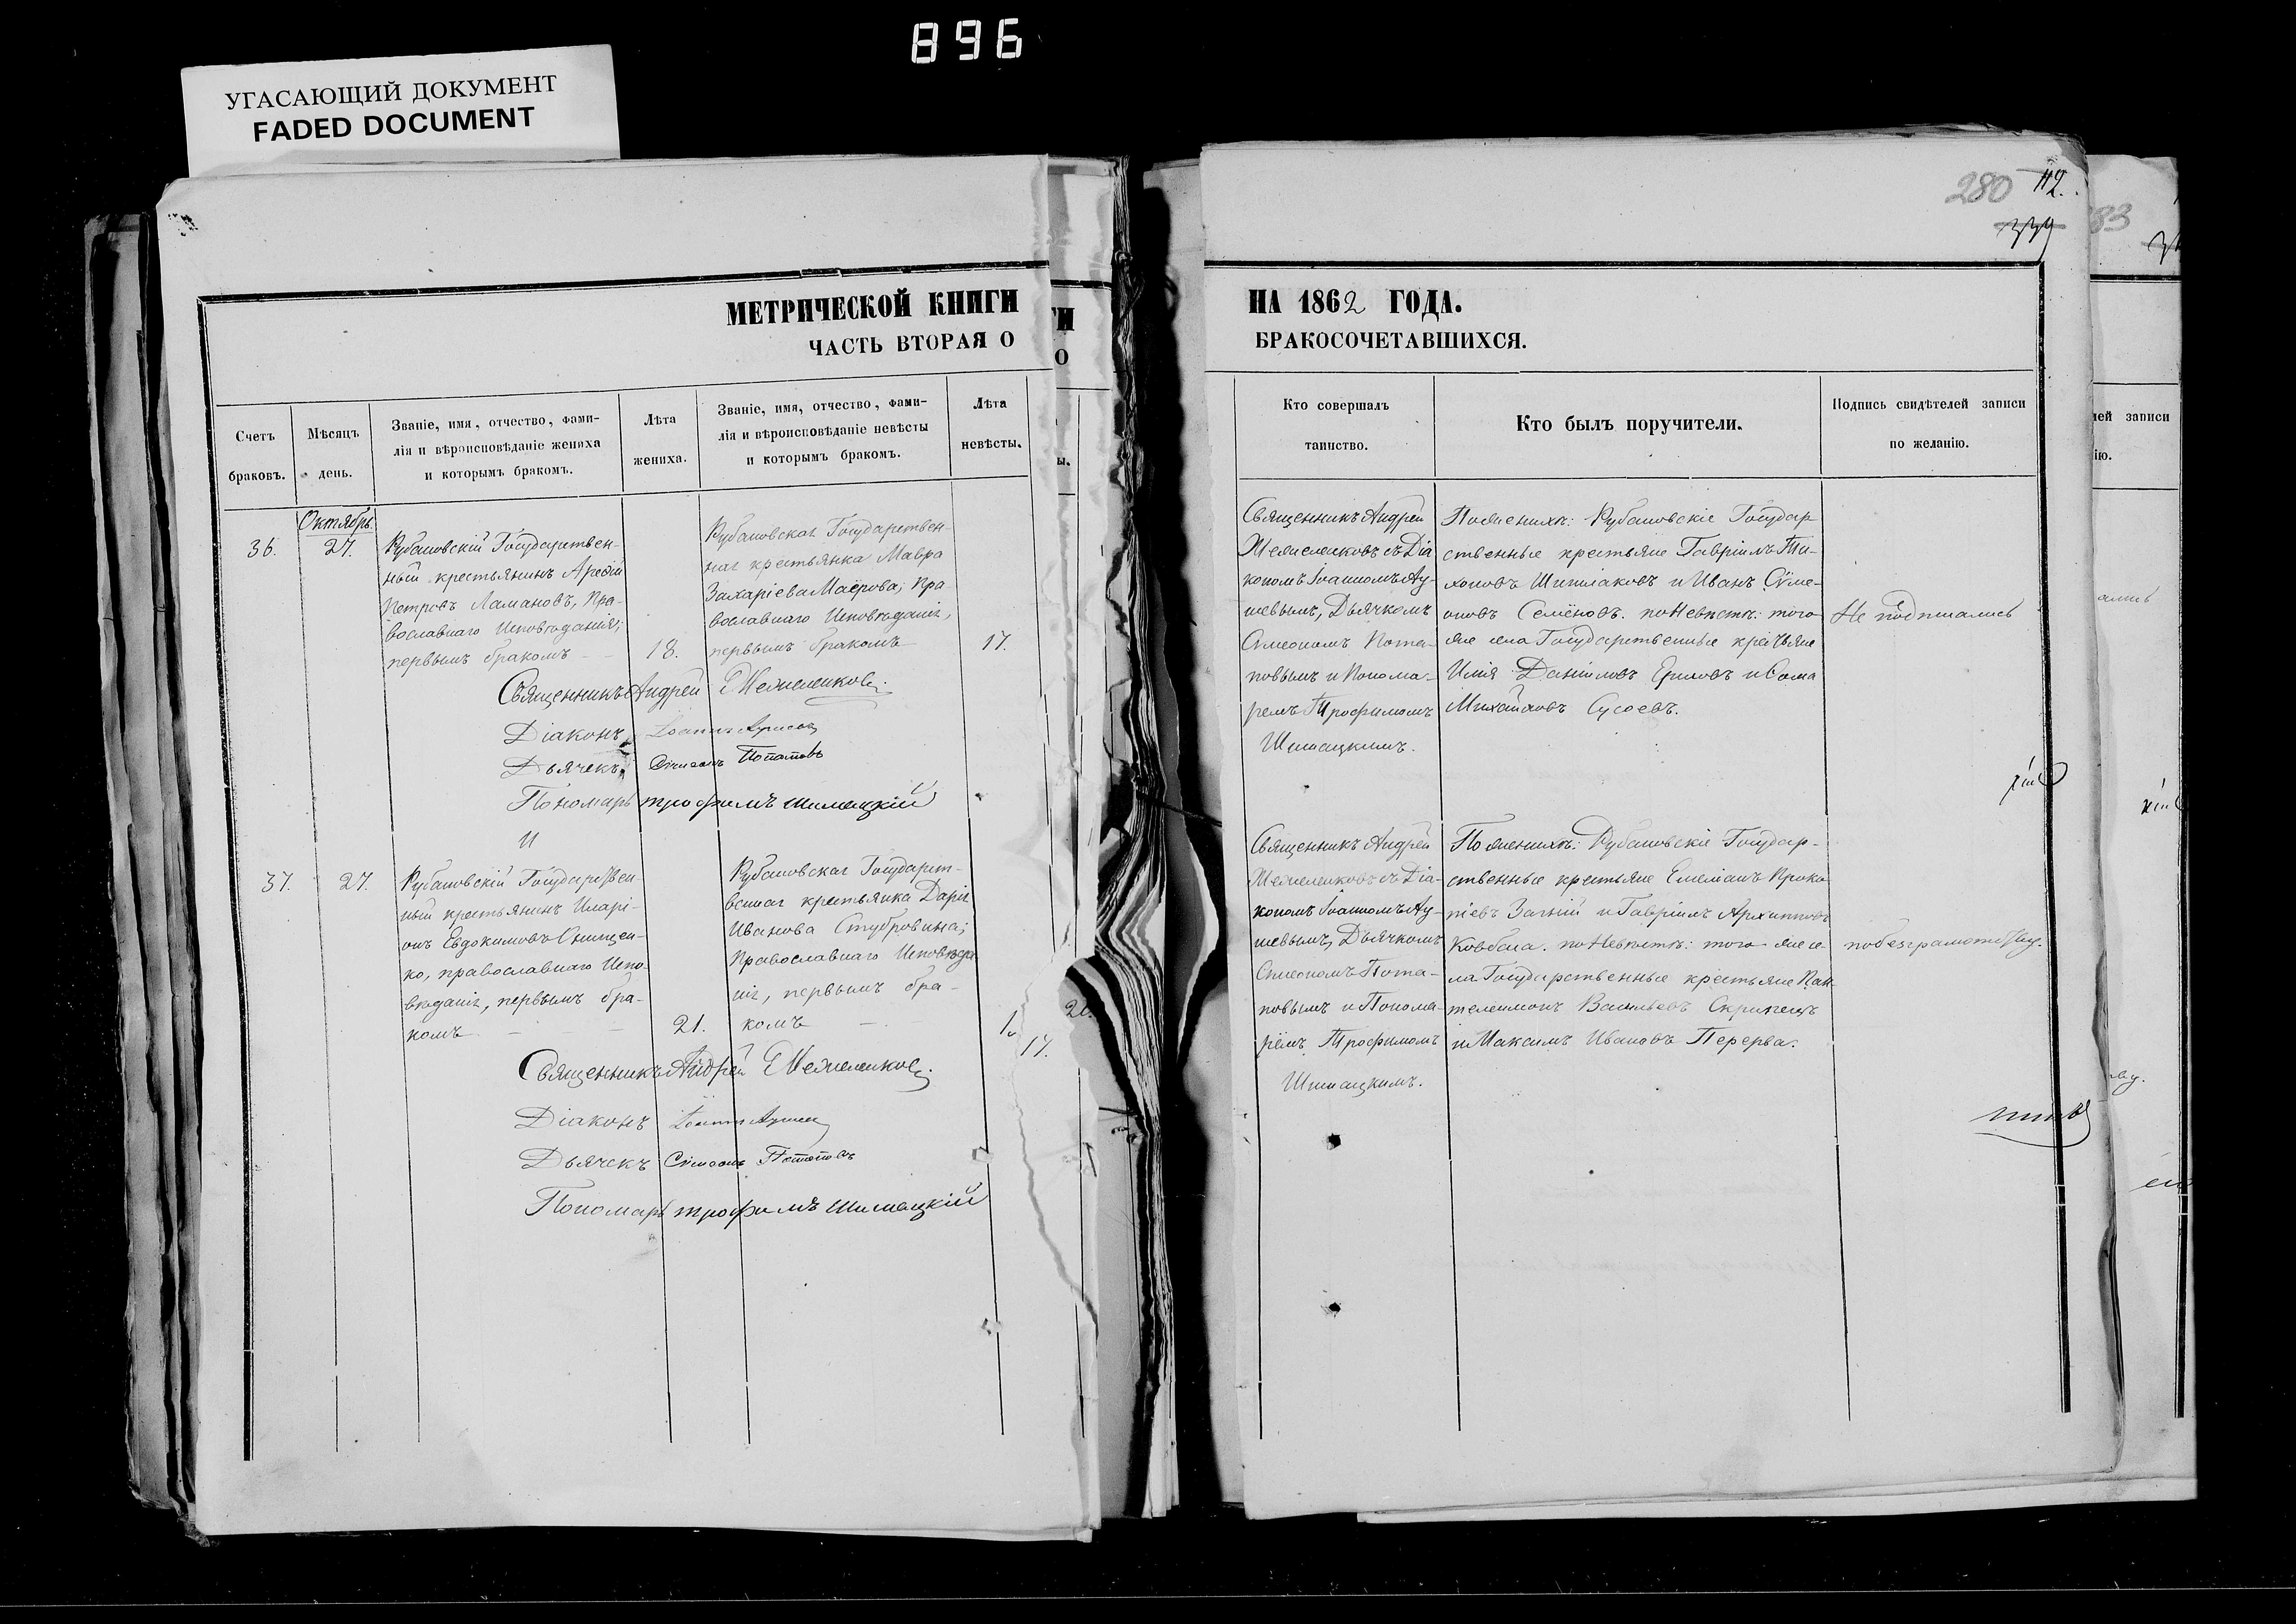 896
УГАСАЮЩИЙ ДОКУМЕНТ
FADED DOCUMENT
МЕТРИЧЕСКОЙ КНИГИ
ЧАСТЬ ВТОРАЯ О
Счетъ браковъ.
Мѣсяцъ день.
Званіе, имя, отчество, фами-
лія и вѣроисповѣданіе жениха
и которымъ бракомъ.
Лѣта
жениха.
Званіе, имя, отчество, фами-
лія и вѣроисповѣданіе невѣсты
и которымъ бракомъ.
Лѣта
невѣсты.
Октябрь.
36.
27.
Рубановскій Государствен-
ный крестьянинъ
Петровъ Ламановъ, Пра-
вославнаго Исповѣданія,
первымъ бракомъ
18.
Рубановская Государствен-
ная крестьянка Мавра
Захаріева Маерова, Пра
вославнаго Исповѣданія,
первымъ бракомъ
17.
Священникъ Андрей
Діаконъ Іоаннъ
Дьячекъ Симеонъ Потаповъ
Пономарь трофимъ Шимацкій
37.
27.
Рубановскій Государствен
ный крестьянинъ Иларі-
онъ Евдокимовъ Онищен-
ко, православнаго Испо-
вѣданія, первымъ бра-
комъ
21.
Рубановская Государст-
венная крестьянка Дарія
Иванова Стубровина;
Православнаго Исповѣда
нія, первымъ бра-
комъ
17.
Священникъ Андрей
Діаконъ Іоаннъ
Дьячекъ Симеонъ Потаповъ
Пономарь трофимъ Шимацкій
280 112.
339
НА 1862 ГОДА.
БРАКОСОЧЕТАВШИХСЯ.
Кто совершалъ
таинство.
Кто былъ поручители.
Подпись свидѣтелей записи
по желанію.
Священникъ Андрей
съ Діа
кономъ Іоанномъ Ау-
шевымъ, Дьячкомъ
Симеономъ Пота-
повымъ и Понома-
ремъ Трофимомъ
Шимацкимъ.
По женихѣ: Рубановскіе Государ
ственные крестьяне Гавріилъ Ти-
хоновъ Шипилаковъ и Иванъ Симе-
оновъ Семёновъ. по Невѣстѣ: того
же села Государственные крестьяне
Илія Даниловъ Ериловъ и Сома
Михайловъ Сусоевъ.
Не подписались
Священникъ Андрей
съ Діа-
кономъ Іоанномъ Ау-
шевымъ, Дьячкомъ
Симеономъ Пота-
повымъ и Понома-
рёмъ Трофимомъ
Шимацкимъ.
По женихѣ: Рубановскіе Государ-
ственные крестьяне Емеліанъ Проко
піевъ Загній и Гавріилъ Архипповъ
Ковбаса. по Невѣстѣ: того же се-
ла Государственные крестьяне Пан-
телеимонъ Васильевъ Скрипецъ
и Максимъ Ивановъ Перерва.
по безграмотству.